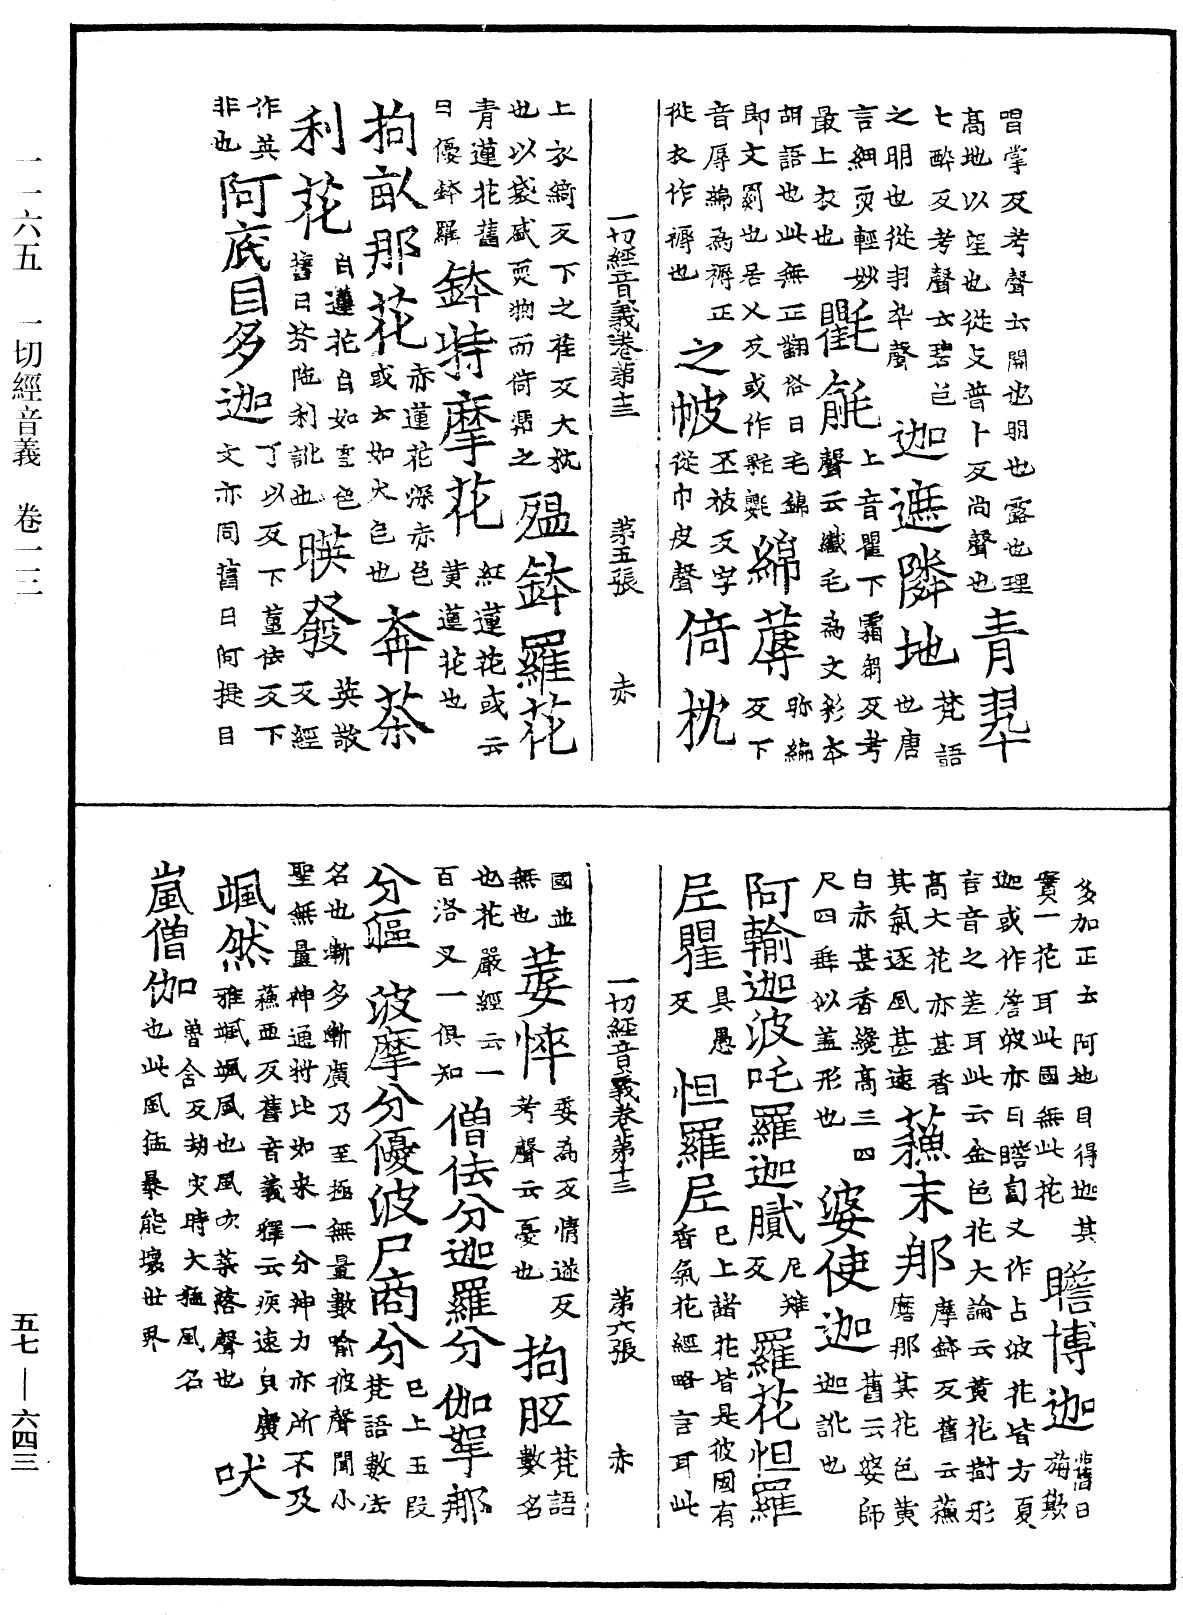 唱掌反考聲云開也明也露也理
高地以望也從攴普卜反尚聲也
青翠
七醉反考聲云碧色
之明也從羽卒聲
迦遮隣地
梵語
也唐
言細耎輕妙
最上衣也
氍毹
上音瞿下霜芻反考
聲云纖毛為文彩本
胡語也此無正翻俗曰毛錦
即文罽也居乂反或作毾㲪
綿蓐
弥編
反下
音辱綿為褥正
從衣作褥也
之帔
丕被反字
從巾皮聲
倚枕
一切經音義卷第十三 第五張 赤
上衣綺反下之荏反又大枕
也以袋盛耎物而倚之
殟鉢羅花
青蓮花舊
曰優鉢羅
鉢特摩花
紅蓮花或云
黄蓮花也
拘畝那花
赤蓮花深赤色
或云如火色也
奔荼
利花
白蓮花白如雪色
舊曰芬陁利訛也
暎發
英敬
反經
作英
非也
阿底目多迦
丁以反下薑佉反下
文亦同舊曰阿提目
多加正云阿地目得迦其
實一花耳此國無此花
瞻博迦
舊曰
旃
迦或作詹波亦曰瞻匐又作占波花皆方夏
言音之差耳此云金色花大論云黃花樹形
高大花亦甚香
其氣逐風甚遠
蘓末那
摩鉢反舊云蘓
磨那其花色黃
白亦甚香纔高三四
尺四垂似盖形也
婆使迦
舊云婆師
迦訛也
阿輸迦波吒羅迦膩
尼雉
反
羅花怛羅
𡰱瞿
具愚
反
怛羅𡰱
已上諸花皆是彼國有
香氣花經略言耳此
一切經音義卷第十三 第六張 赤
國並
無也
萎悴
委為反情遂反
考聲云憂也
拘胝
梵語
數名
也花嚴經云一
百洛叉一俱知
僧佉分迦羅分伽拏那
分嘔波摩分優波尸商分
已上五段
梵語數法
名也漸多漸廣乃至極無量數喻彼聲聞小
聖無量神通將比如来一分神力亦所不及
颯然
蘓匝反舊音義釋云疾速皃廣
雅颯颯風也風吹葉落聲也
吠
嵐僧伽
曽舍反劫灾時大猛風名
也此風猛暴能壞世界
一一六五 一切經音義 卷一三
五七—六四三